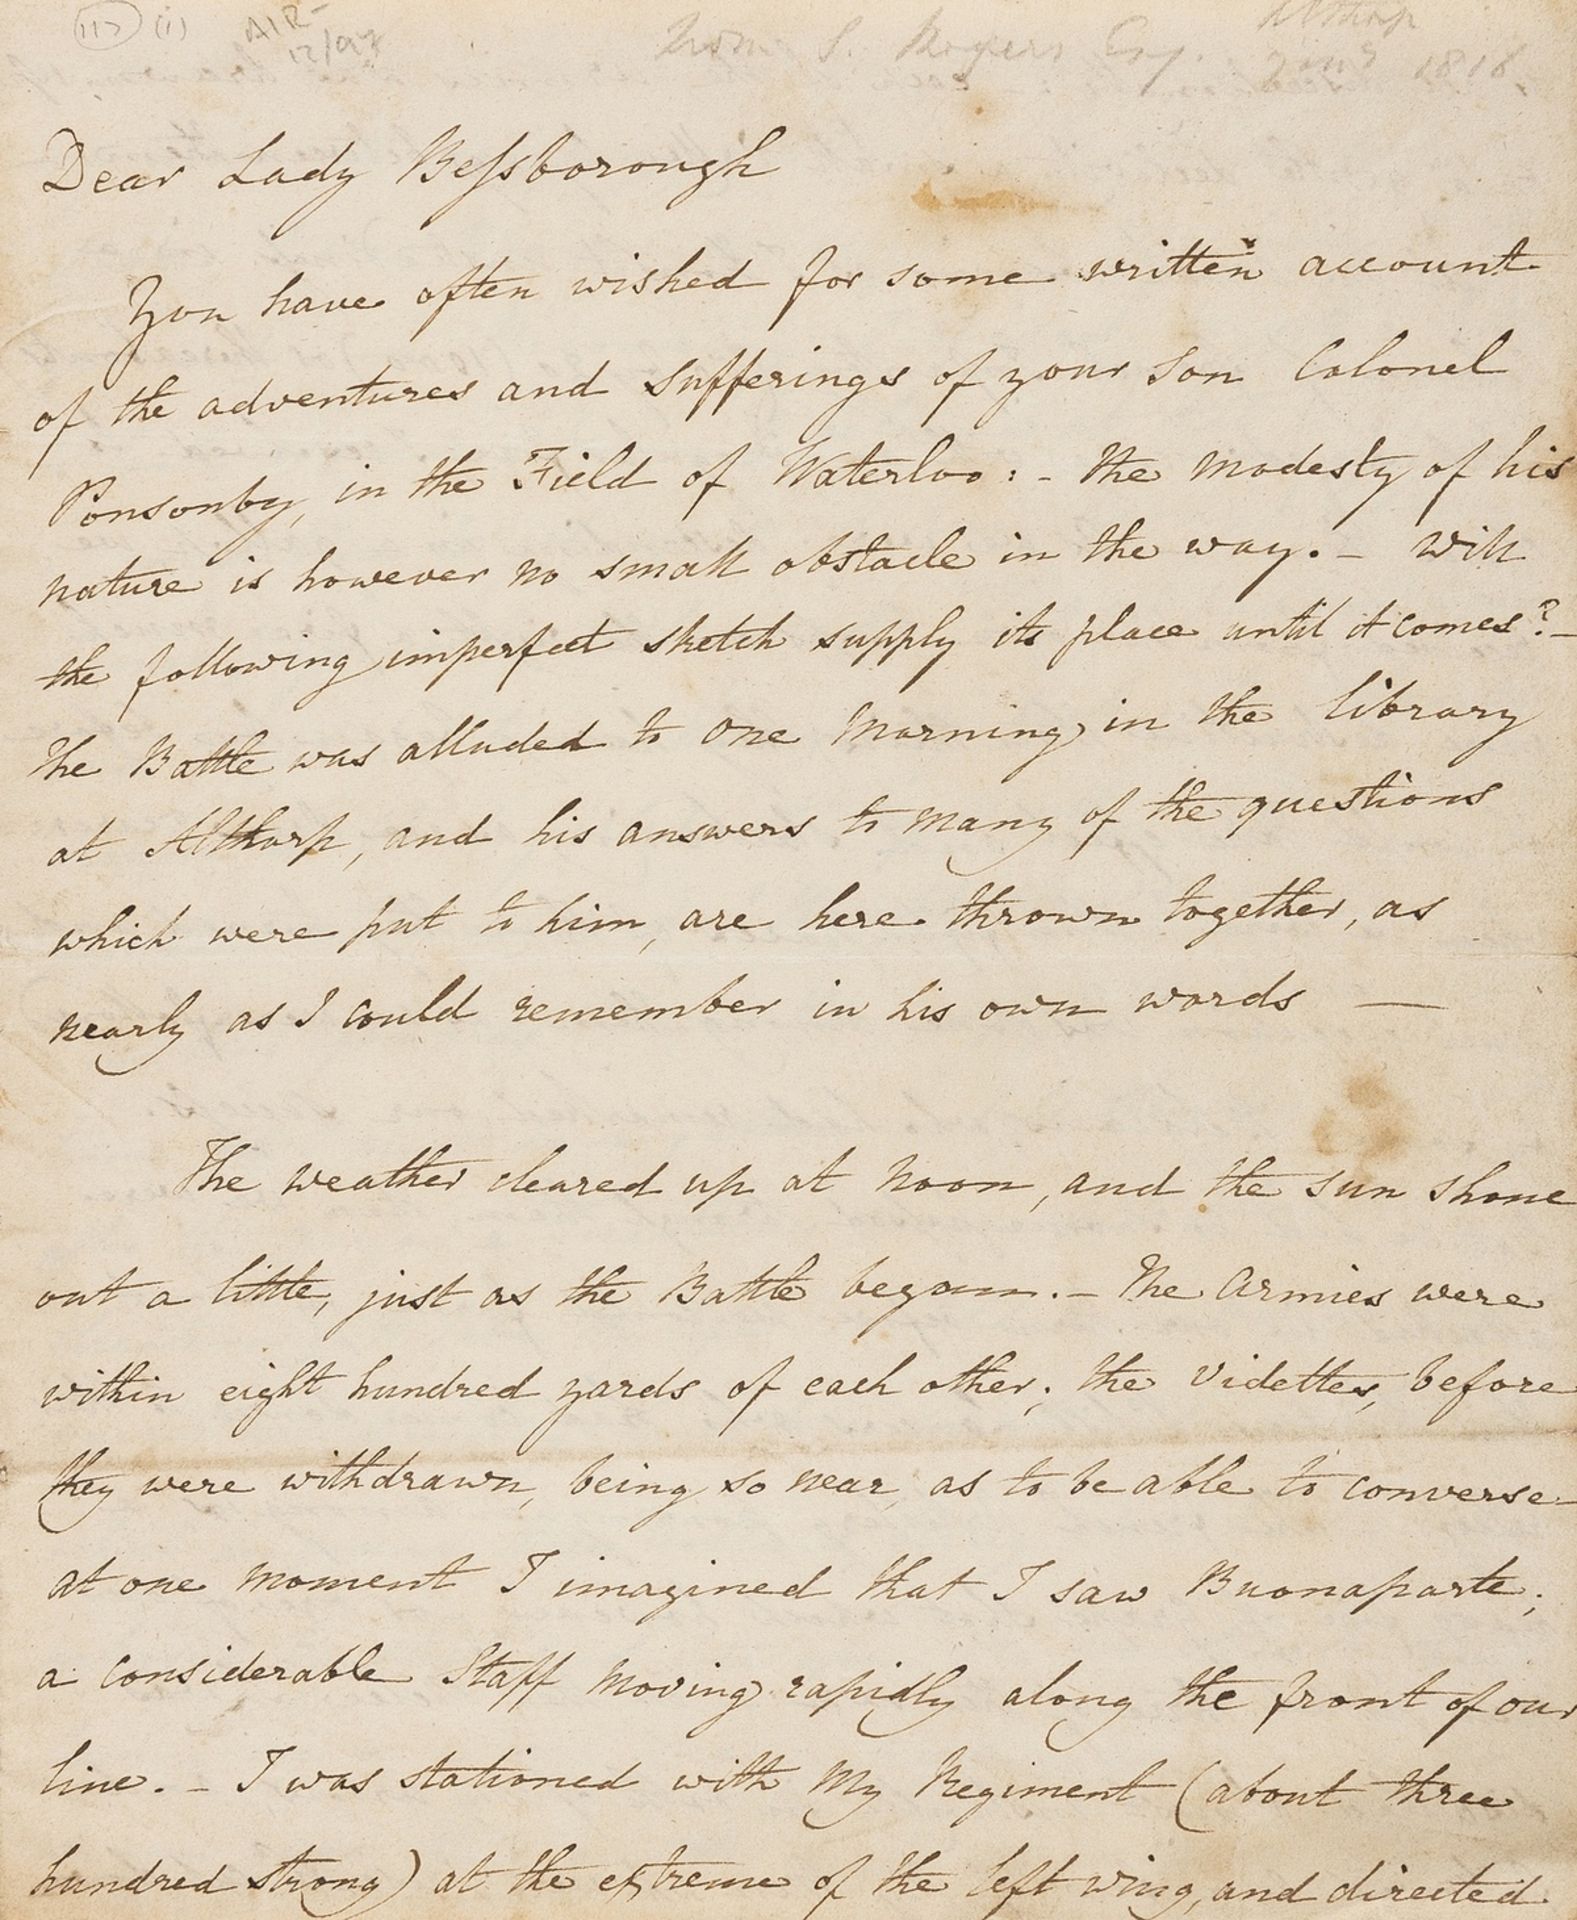 117 (i) AIR 12/97
From S. Rogers Esq. Althorp
1816.
Dear Lady Beſsborough
You have often wished for some written account
of the adventures and sufferings of your son Colonel
Ponsonby, in the Field of Waterloo: - the modesty of his
nature is however no small obstacle in the way. - Will
the following imperfect sketch supply its place until it comes? -
The Battle was alluded to one Morning in the library
at Althorp, and his answers to many of the questions
which were put to him, are here thrown together, as
nearly as I could remember in his own words —
The weather cleared up at noon, and the sun shone
out a little, just as the Battle began. - The Armies were
within eight hundred yards of each other; the Videttes, before
they were withdrawn, being so near, as to be able to converse -
at one moment I imagined that I saw Buonaparte;
a considerable Staff moving rapidly along the front of our
line. - I was stationed with my Regiment (about three
hundred strong) at the extreme of the left wing, and directed